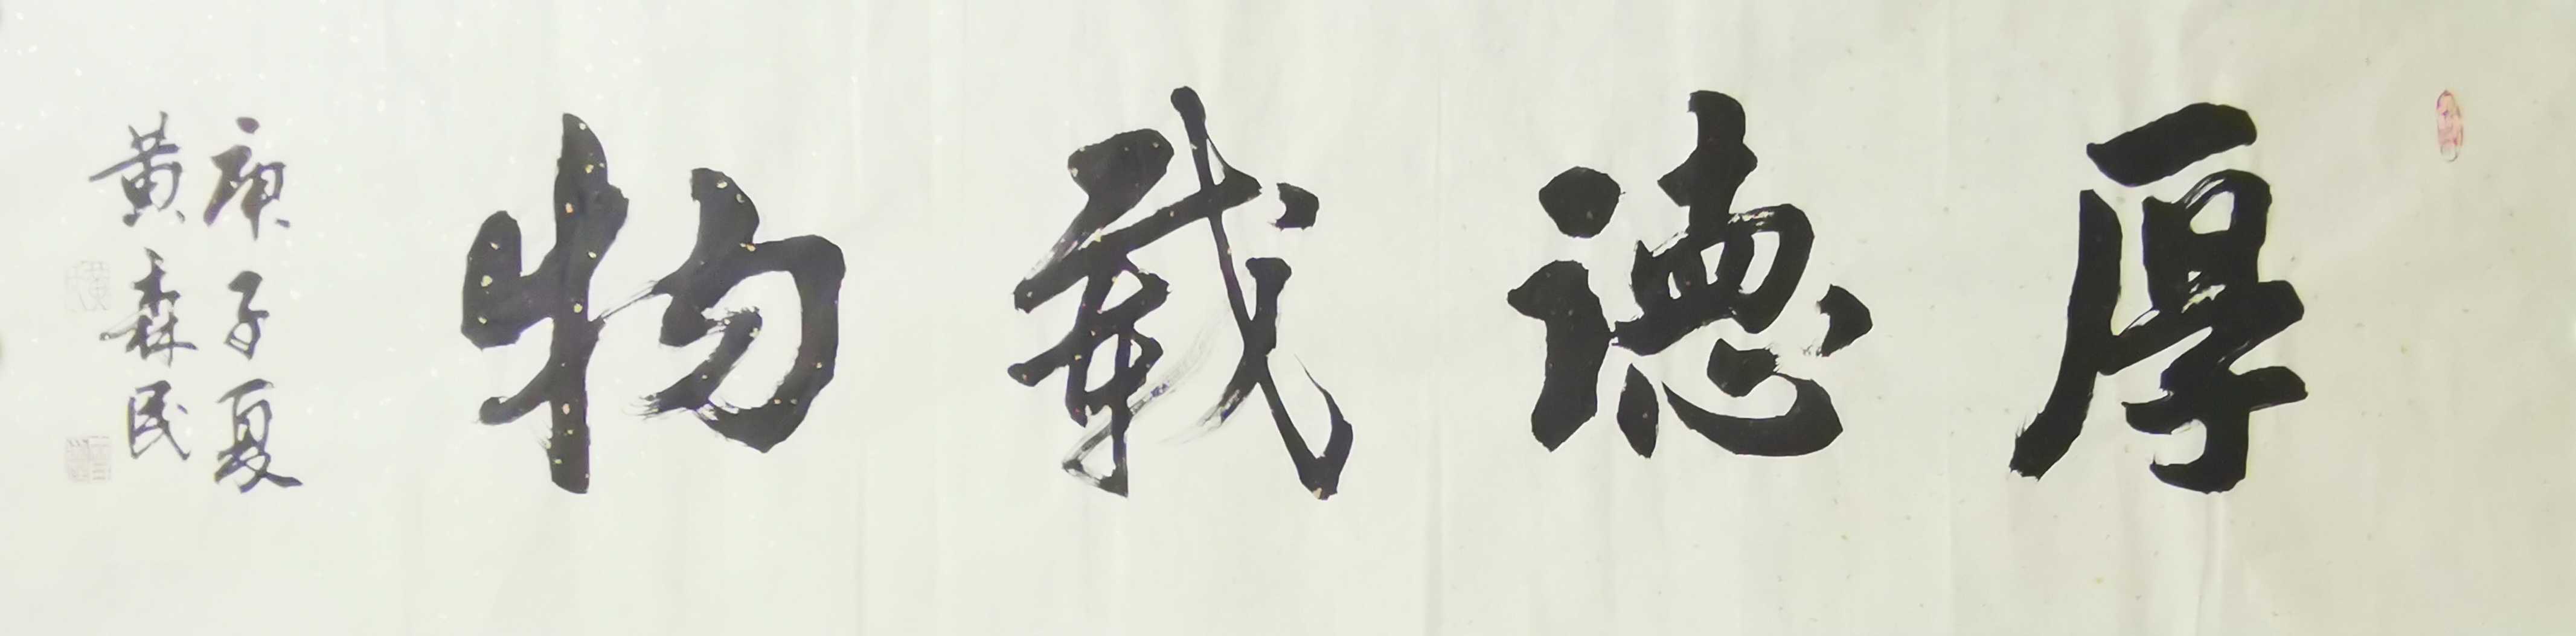 厚德载物
庚子夏
黄森民